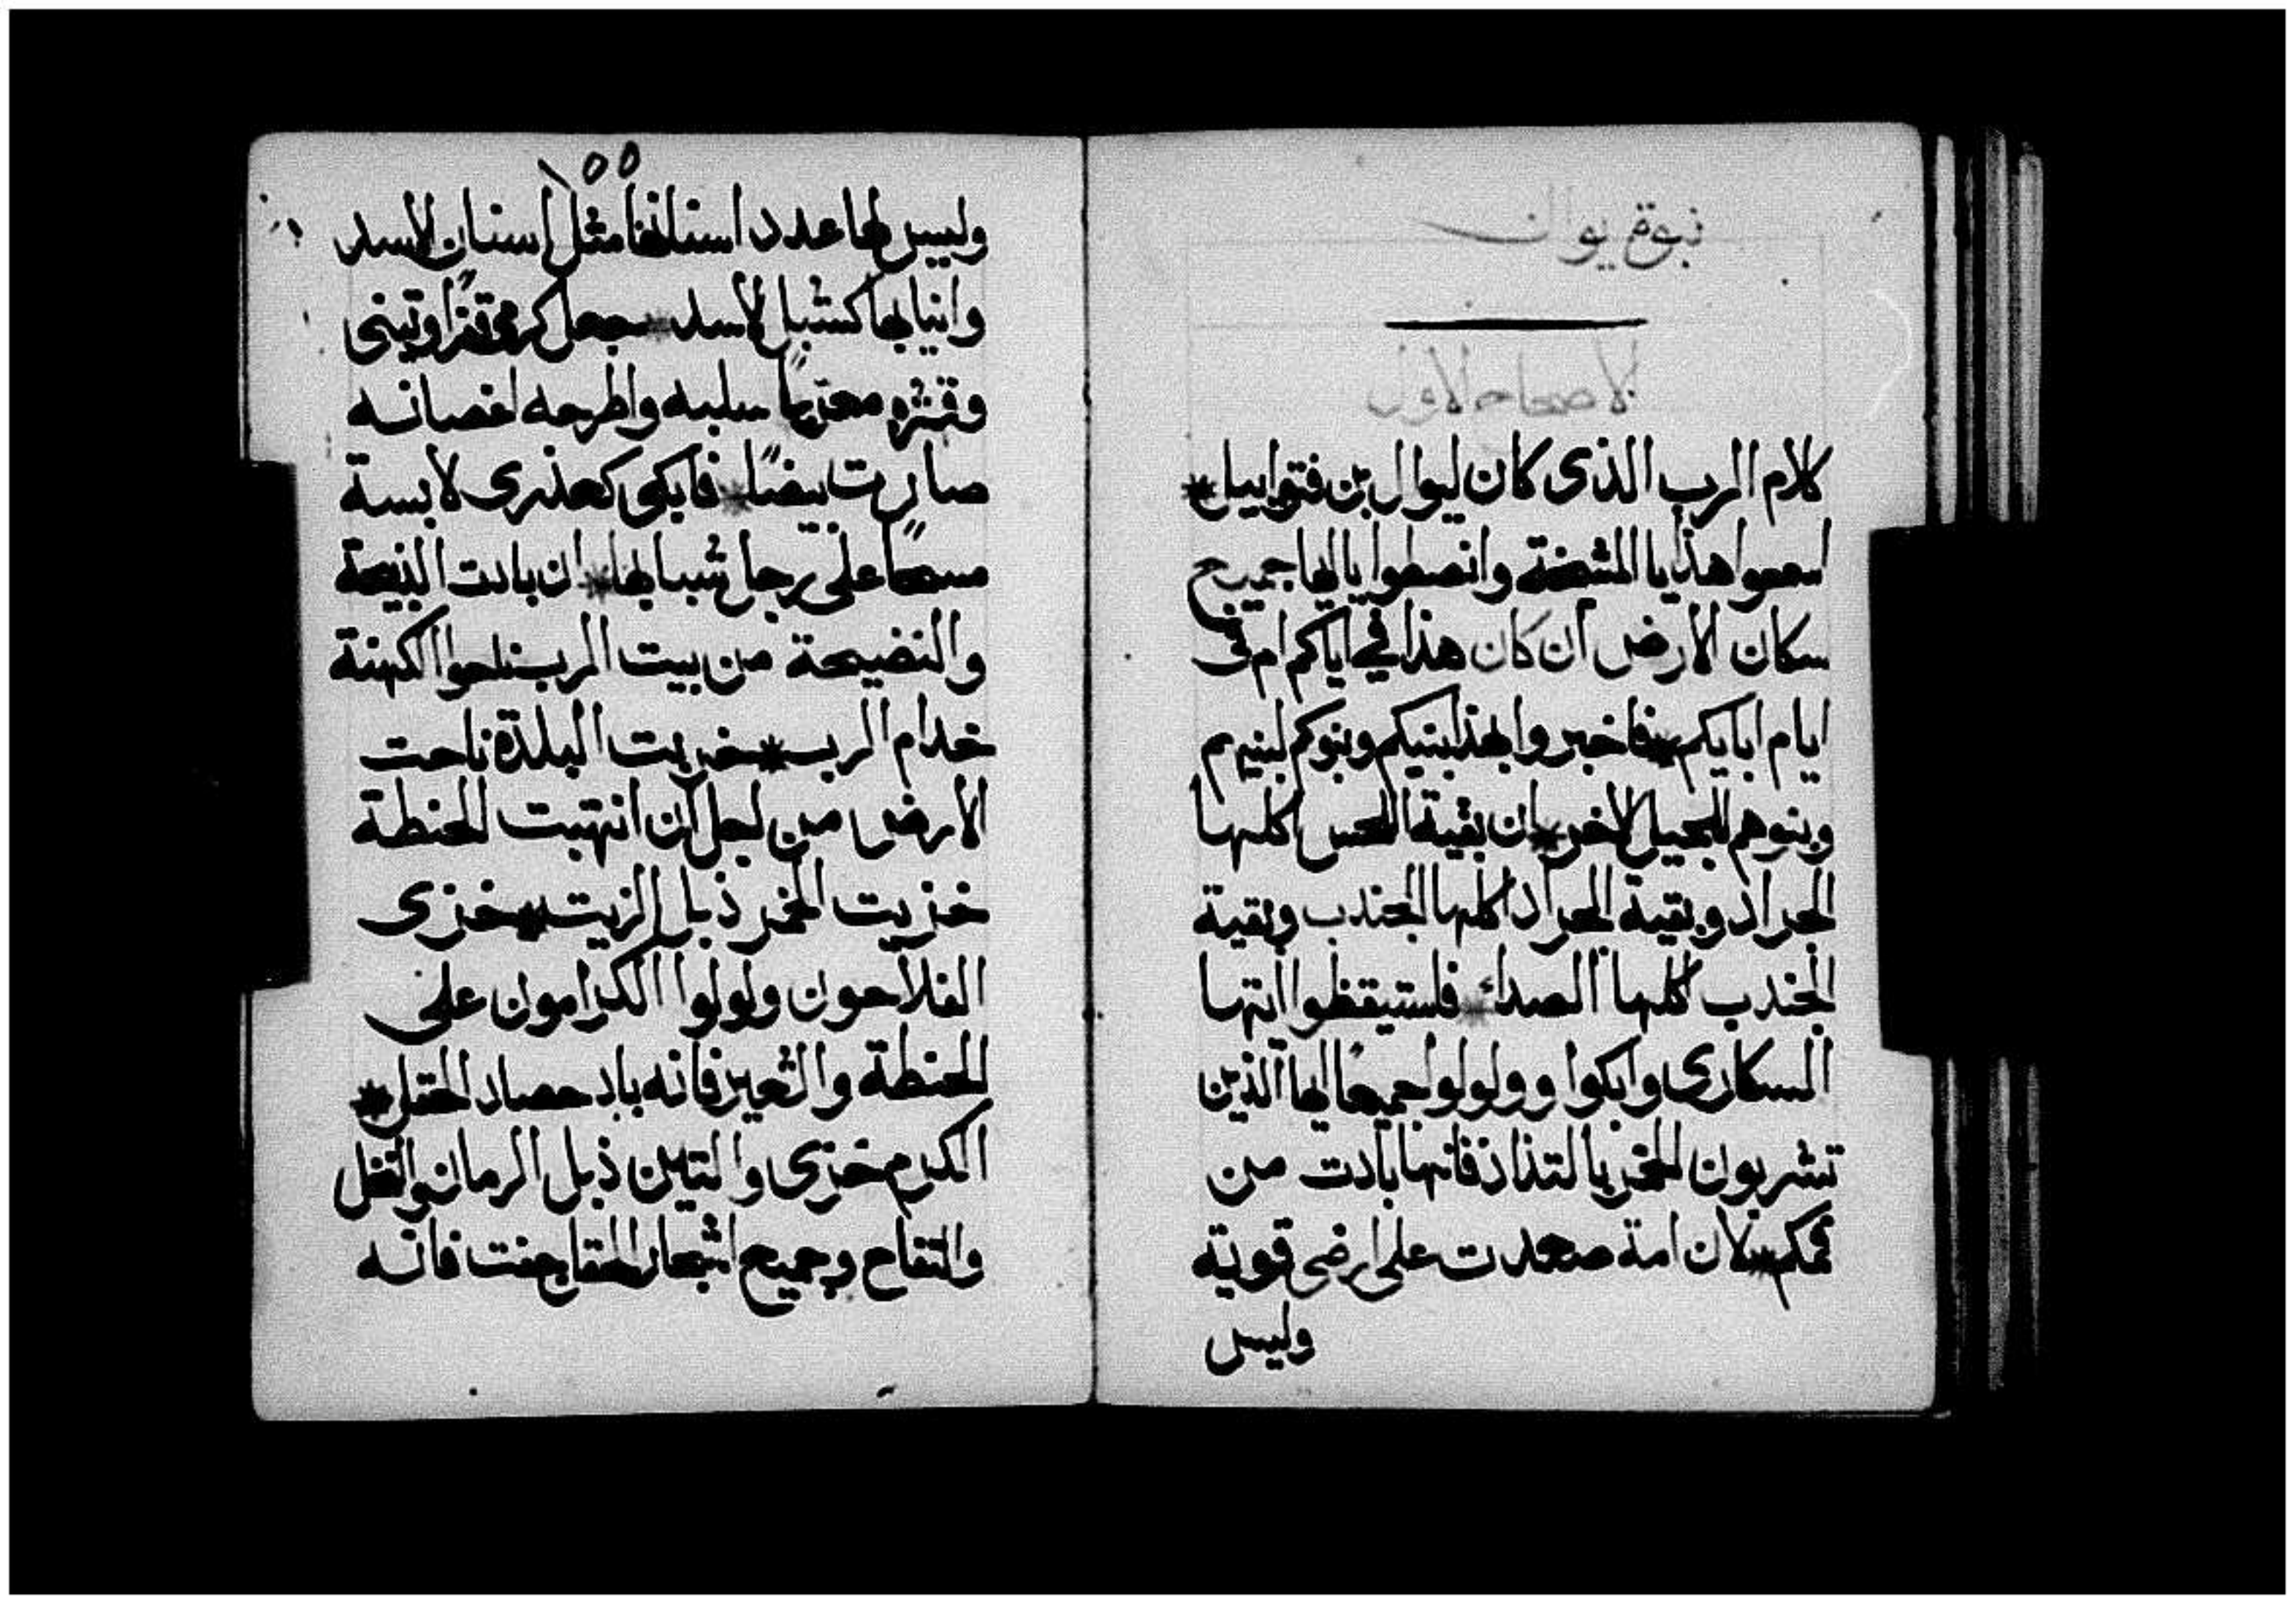 نبوة يوال
الاصحاح الاول
كلام الرب الذى كان ليوال بن فتوابيل *
اسمعوا هذا يا المشيخة وانصطوا يا ايها جميع
سكان الارض ان كان هذا فى ايامكم ام فى
ايام ابايكم * فاخبروا بهذا بنيكم وبنوكم لبنيهم
وبنوهم للجيل الاخر * ان بقية اللحس اكلها
الجراد وبقية الجراد اكلها الجندب وبقية
الجندب اكلها الصداء * فلستيقظوا ايتها
السكارى وابكوا وولولوا جميعًا ايها الذين
تشربون الخمر بالتذاذ فانها بادت من
فمكم * لان امة صعدت على ارضى قوية
وليس
١٥٥
وليس لها عدد اسنانها مثل اسنان الاسد
وانيابها كشبل الاسد * جعل كرمى قفرًا وتينى
وقشره معريًا سلبه واطرحه اغصانه
صارت بيضًا * فابكى كعذرى لابسة
مسحًا على رجل شبابها * ان بادت الذبيحة
والنضيحة من بيت الرب ناحوا الكهنة
خدام الرب * خربت البلدة ناحت
الارض من اجل ان انتهبت الحنطة
خزيت الخمر ذبل الزيت * خزى
الفلاحون ولولوا الكرامون على
الحنطة والشعير فانه باد حصاد الحقل *
الكرم خزى والتين ذبل الرمان والنخل
والتفاح وجميع اشجار الحقل جفت فانه